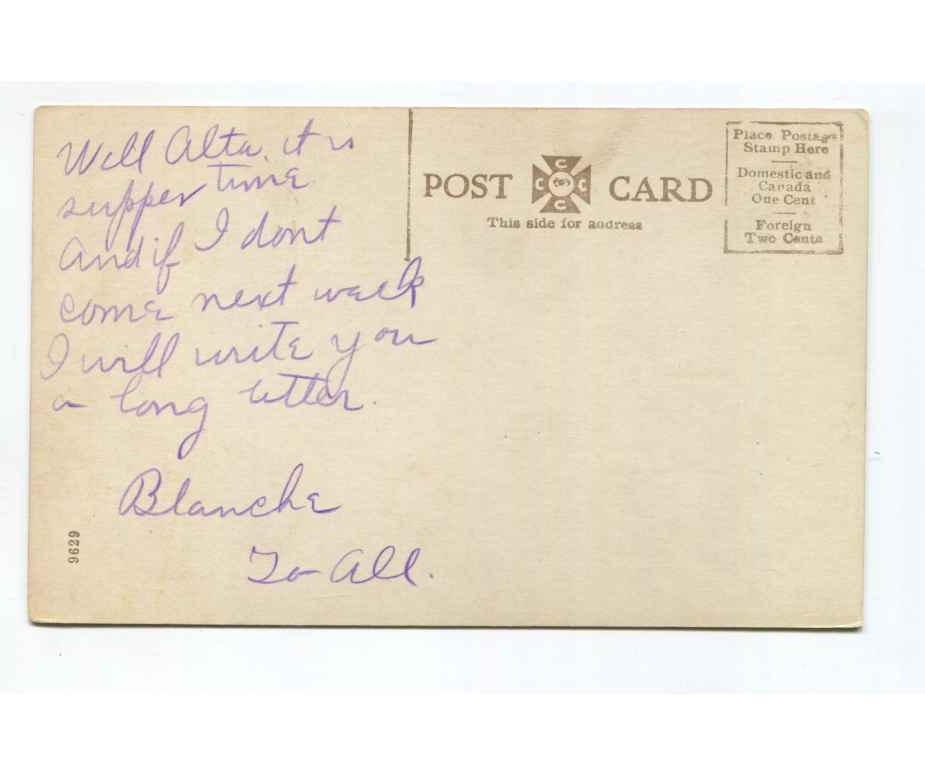 Well Alta, it is
supper time
And if I dont
come next week
I will write you
a long letter.
Blanche
To All.
9629
POST CARD
C
C C
C
This side for address
Place Postage
Stamp Here
Domestic and
Canada
One Cent
Foreign
Two Cents